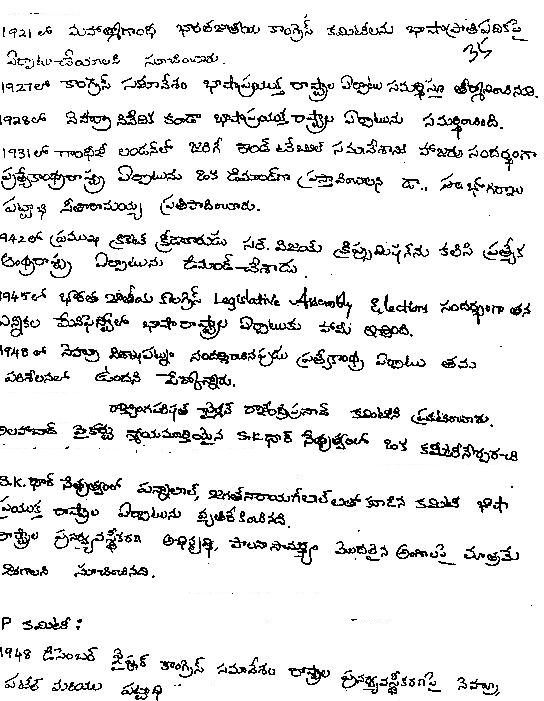 1921లో మహాత్మాగాంధీ భారతజాతీయ కాంగ్రెస్ కమిటీలను భాషాప్రాతిపదికపై
35
ఏర్పాటు చేయాలని సూచించారు.
1927లో కాంగ్రెస్ సమావేశం భాషాప్రయుక్త రాష్ట్రాల ఏర్పాటు సమర్థిస్తూ తీర్మానించినది.
1928లో నెహ్రూ నివేదిక కూడా భాషాప్రయుక్త రాష్ట్రాల ఏర్పాటును సమర్థించింది.
1931లో గాంధీజీ లండన్‌లో జరిగే రౌండ్ టేబుల్ సమావేశానికి హాజరు సందర్భంగా
ప్రత్యేకాంధ్రరాష్ట్ర ఏర్పాటును ఒక డిమాండ్‌గా ప్రస్తావించాలని డా.,
పట్టాభి సీతారామయ్య ప్రతిపాదించారు.
942లో ప్రముఖ క్రికెట్ క్రీడాకారుడు సర్. విజయ్ క్రిప్స్‌మిషన్‌ను కలిసి ప్రత్యేక
ఆంధ్రరాష్ట్ర ఏర్పాటును డిమాండ్ చేశాడు.
1945లో భారత జాతీయ కాంగ్రెస్ Legislative Assembly Elections సందర్భంగా తన
ఎన్నికల మేనిఫెస్టోలో భాషారాష్ట్రాల ఏర్పాటుకు హామీ ఇచ్చింది.
1948లో నెహ్రూ విశాఖపట్నం సందర్శించినప్పుడు ప్రత్యేకాంధ్ర ఏర్పాటు తమ
పరిశీలనలో ఉందని పేర్కొన్నారు.
రాజ్యాంగపరిషత్ ఛైర్మన్ రాజేంద్రప్రసాద్ కమిటీని ప్రకటించారు.
అలహాబాద్ హైకోర్టు న్యాయమూర్తియైన S.K.థార్ నేతృత్వంలో ఒక కమిటీనేర్పరచి
S.K.థార్ నేతృత్వంలో పన్నాలాల్, జగత్‌నారాయణ్‌లాల్‌లతో కూడిన కమిటీ భాషా
ప్రయుక్త రాష్ట్రాల ఏర్పాటును వ్యతిరేకించినది.
రాష్ట్రాల పునర్వ్యవస్థీకరణ అభివృద్ధి, పాలనాసామర్థ్యం మొదలైన అంశాలపై మాత్రమే
జరగాలని సూచించినది.
P కమిటీ :
1948 డిసెంబర్ జైపూర్ కాంగ్రెస్ సమావేశం రాష్ట్రాల పునర్వ్యవస్థీకరణపై నెహ్రూ,
పటేల్ మరియు పట్టాభి